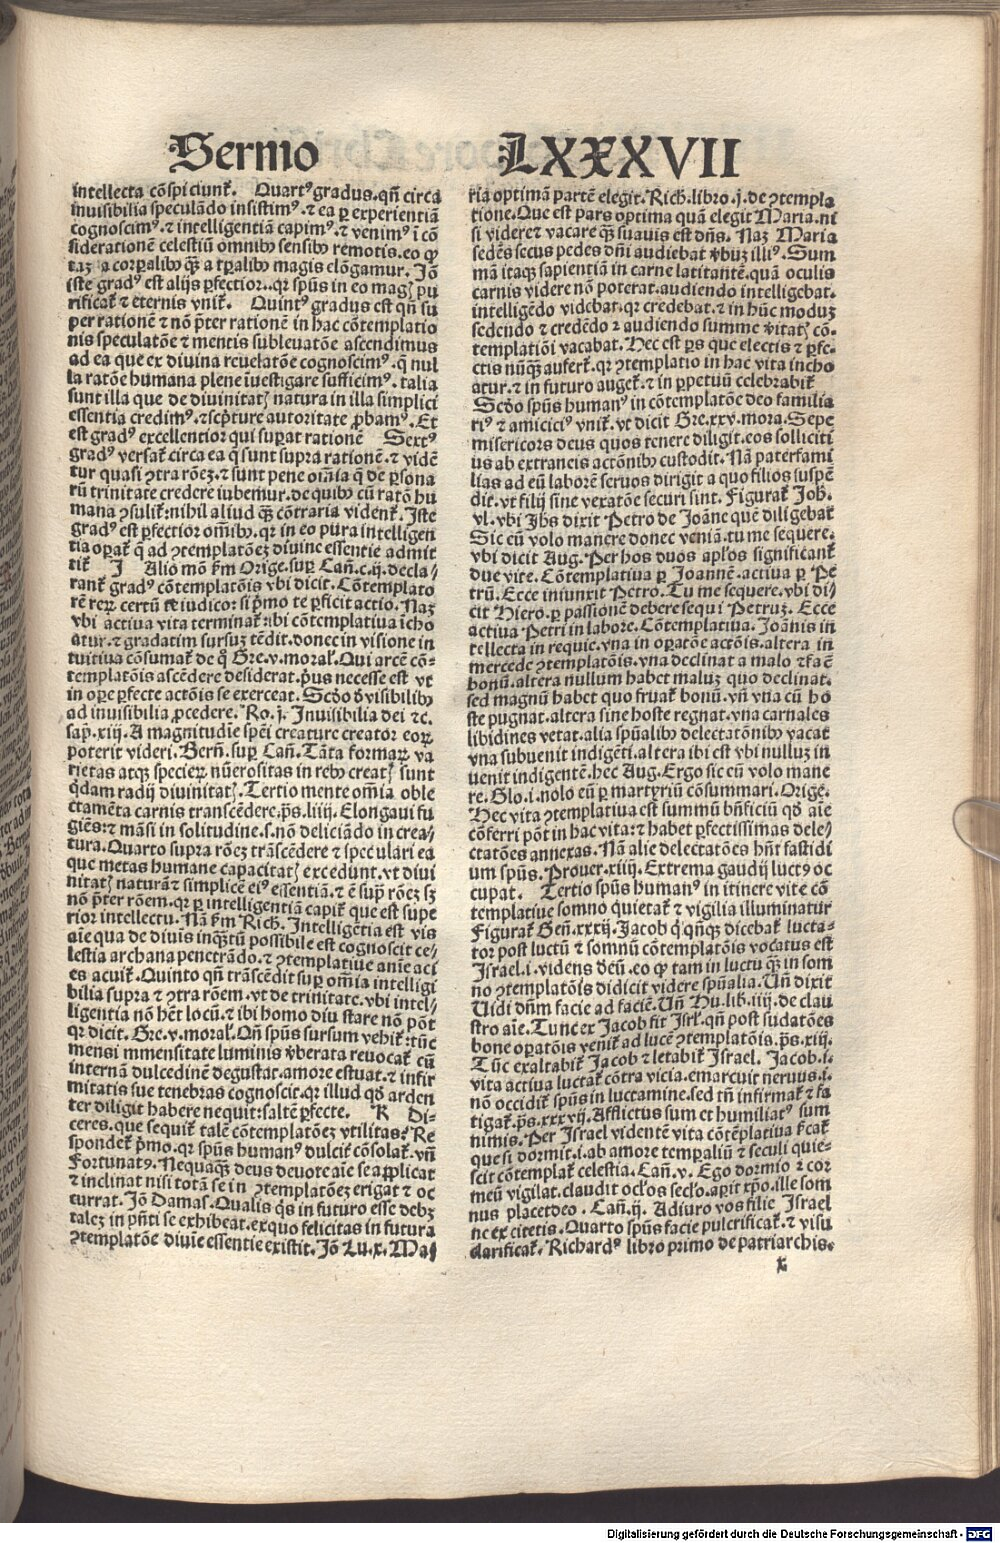 Sermo LXXXVII
intellecta cōspiciunt̄. Quartꝰ gradus. qn̄ circa
inuisibilia speculādo insistimꝰ. ⁊ ea ꝑ experientiā
cognoscimꝰ. ⁊ intelligentiā capimꝰ. ⁊ venimꝰ ī cō
siderationē celestiū omnibꝰ sensibꝰ remotis. eo ꝙ
a corꝑalibꝰ qͣꝫ a tꝑalibꝰ magis elōgamur. Iō
iste gradꝰ est alijs ꝑfectior. qꝛ spūs in eo magꝭ pu
rificat̄ ⁊ eternis vnit̄. Quintꝰ gradus est qn̄ su
per rationē ⁊ nō p̄ter rationē in hac cōtemplatio
nis speculatōe ⁊ mentis subleuatōe ascendimus
ad ea que ex diuina reuelatōe cognoscimꝰ. q̄ nul
la ratōe humana plene īuestigare sufficimꝰ. talia
sunt illa que de diuinitatꝭ natura in illa simplici
essentia credimꝰ. ⁊ scpͥture autoritate ꝓbamꝰ. Et
est gradꝰ excellentior qui suꝑat rationē Sextꝰ
gradꝰ versat̄ circa ea q̄ sunt supra rationē. ⁊ vidē
tur quasi ꝯtra rōeꝫ. ⁊ sunt pene om̄ia q̄ de ꝑsona
rū trinitate credere iubemur. de quibꝰ cū ratō hu
mana ꝯsulit̄: nihil aliud qͣꝫ cōtraria vident̄. Iste
gradꝰ est ꝑfectior om̄ibꝰ. qꝛ in eo pura intelligen
tia oꝑat̄ q̄ ad ꝯtemplatōeꝫ diuine essentie admit
tit̄ I Alio mō ẜm Orige. suꝑ Cañ. c. ij. decla/
rant̄ gradꝰ cōtemplatōis vbi dicit. Cōtemplato
rē reꝝ certū te iudico: si pͥmo te ꝑficit actio. Naꝫ
vbi actiua vita terminat̄: ibi cōtemplatiua īcho
atur. ⁊ gradatim sursuꝫ tēdit. donec in visione in
tuitiua cōsumat̄ de q̄ Gre. v. moral̄. Qui arcē cō=
templatōis ascēdere desiderat. pͥus necesse est vt
in oꝑe ꝑfecte actōis se exerceat. Scd̄o ꝟ visibilibꝰ
ad inuisibilia ꝓcedere. Ro. j. Inuisibilia dei ⁊c.
sap̄. xiij. A magnitudie spēi creature creator eoꝝ
poterit videri. Berñ. suꝑ Cañ. Tāta formaꝝ va
rietas atqꝫ specieꝝ nūerositas in rebꝰ creatꝭ sunt
q̄dam radij diuinitatꝭ. Tertio mente om̄ia oble
ctamēta carnis transcēdere. ps̄. liiij. Elongaui fu
giēs: ⁊ māsi in solitudine. s. nō deliciādo in crea/
tura. Quarto supra rōeꝫ trāscēdere ⁊ speculari ea
que metas humane capacitatꝭ excedunt. vt diui
nitatꝭ naturā ⁊ simplicē eiꝰ essentiā. ⁊ ē suꝑ rōeꝫ sꝫ
nō p̄ter rōem. qꝛ ꝑ intelligentiā capit̄ que est supe
rior intellectu. Nā ẜm Rich. Intelligētia est vis
aīe qua de diuīs inqͣꝫtū possibile est cognoscit ce/
lestia archana penetrādo. ⁊ ꝯtemplatiue anīe aci
es acuit̄. Quinto qn̄ trāscēdit suꝑ om̄ia intelligi
bilia supra ⁊ ꝯtra rōem. vt de trinitate. vbi intel/
ligentia nō hēt locū. ⁊ ibi homo diu stare nō pōt
qꝛ dicit. Gre. v. moral̄. Qn̄ spūs sursum vehit̄: tūc
mensi immensitate luminis ꝟberata reuocat̄ cū
internā dulcedinē degustat. amore estuat. ⁊ infir
mitatis sue tenebras cognoscit. qꝛ illud qd̄ arden
ter diligit habere nequit: saltē ꝑfecte. K Di=
ceres. que sequit̄ talē cōtemplatōeꝫ vtilitas? Re
spondet̄ pͥmo. qꝛ spūs humanꝰ dulcit̄ cōsolat̄. vn̄
Fortunatꝰ. Nequaqͣꝫ deus deuote aīe se applicat
⁊ inclinat nisi totā se in ꝯtemplatōeꝫ erigat ⁊ oc
currat. Iō Damas. Qualis qͥs in futuro esse debꝫ
taleꝫ in pn̄ti se exhibeat. ex quo felicitas in futura
ꝯtemplatōe diuīe essentie existit. Iō Lu. x. Ma/
ria optimā partē elegit. Rich. libro. j. de ꝯtempla
tione. Que est pars optima quā elegit Maria. ni
si videre ⁊ vacare qͣꝫ suauis est dn̄s. Naꝫ Maria
sedēs secus pedes dn̄i audiebat ꝟbuꝫ illiꝰ. Sum
mā itaqꝫ sapientiā in carne latitantē. quā oculis
carnis videre nō poterat. audiendo intelligebat.
intelligēdo videbat. qꝛ credebat. ⁊ in hūc moduꝫ
sedendo ⁊ credēdo ⁊ audiendo summe ꝟitatꝭ cō=
templatiōi vacabat. Hec est ꝑs que electis ⁊ ꝑfe=
ctis nūqͣꝫ aufert̄. qꝛ ꝯtemplatio in hac vita incho
atur. ⁊ in futuro auget̄. ⁊ in ꝑpetuū celebrabit̄
Scd̄o spūs humanꝰ in cōtemplatōe deo familia
riꝰ ⁊ amiciciꝰ vnit̄. vt dicit Gre. xxv. mora. Sepe
misericors deus quos tenere diligit. eos solliciti
us ab extraneis actōnibꝰ custodit. Nā paterfami
lias ad eū laborē seruos dirigit a quo filios suspē
dit. vt filij sine vexatōe securi sint. Figurat̄ Joh̄.
vl. vbi Jh̄s dixit Petro de Joāne quē diligebat
Sic eū volo manere donec veniā. tu me sequere.
vbi dicit Aug. Per hos duos apl̄os significant̄
due vite. Cōtemplatiua ꝑ Joannē. actiua ꝑ Pe
trū. Ecce iniunxit Petro. Tu me sequere. vbi di/
cit Hiero. ꝑ passionē debere sequi Petruꝫ. Ecce
actiua Petri in labore. Cōtemplatiua. Joānis in
tellecta in requie. vna in oꝑatōe actōis. altera in
mercede ꝯtemplatōis. vna declinat a malo ⁊ faē
bonū. altera nullum habet maluꝫ quo declinat.
sed magnū habet quo fruat̄ bonū. vn̄ vna cū ho
ste pugnat. altera sine hoste regnat. vna carnales
libidines vetat. alia spūalibꝰ delectatōnibꝰ vacat
vna subuenit indigēti. altera ibi est vbi nulluꝫ in
uenit indigentē. hec Aug. Ergo sic eū volo mane
re. Glo. i. nolo eū ꝑ martyriū cōsummari. Orige.
Hec vita ꝯtemplatiua est summū bn̄ficiū qd̄ aīe
cōferri pōt in hac vita: ⁊ habet ꝑfectissimas dele=
ctatōes annexas. Nā alie delectatōes hn̄t fastidi
um spūs. Prouer. xiiij. Extrema gaudij luctꝰ oc
cupat. Tertio spūs humanꝰ in itinere vite cō
templatiue somno quietat̄ ⁊ vigilia illuminatur
Figurat̄ Geñ. xxxij. Jacob qͥ qn̄qꝫ dicebat̄ lucta=
tor post luctū ⁊ somnū cōtemplatōis vocatus est
Israel. i. videns deū. eo ꝙ tam in luctu qͣꝫ in som
no ꝯtemplatōis didicit videre spūalia. Vn̄ dixit
Uidi dn̄m facie ad faciē. Vn̄ Hu. lib. iiij. de clau
stro aīe. Tunc ex Jacob fit Isrl̄. qn̄ post sudatōes
bone oꝑatōis venit̄ ad lucē ꝯtemplatōis. ps̄. xiij.
Tūc exaltabit̄ Jacob ⁊ letabit̄ Israel. Jacob. i.
vita actiua luctat̄ cōtra vicia. emarcuit neruus. i.
nō occidit̄ spūs in luctamine. sed tn̄ infirmat̄ ⁊ fa
tigat̄. ps̄. xxxvij. Afflictus sum et humiliatꝰ sum
nimis. Per Israel videntē vita cōtēplatiua pͥcat̄
que si dormit. i. ab amore tempaliū ⁊ seculi quie=
scit cōtemplat̄ celestia. Cañ. v. Ego dormio ⁊ cor
meū vigilat. claudit ocl̄os secl̄o. aꝑit xp̄o. ille som
nus placet deo. Cañ. ij. Adiuro vos filie Israel
ne excitetis. Quarto spūs facie pulcrificat̄. ⁊ visu
clarificat̄. Richardꝰ libro primo de patriarchis.
Digitalisierung gefördert durch die Deutsche Forschungsgemeinschaft - DFG